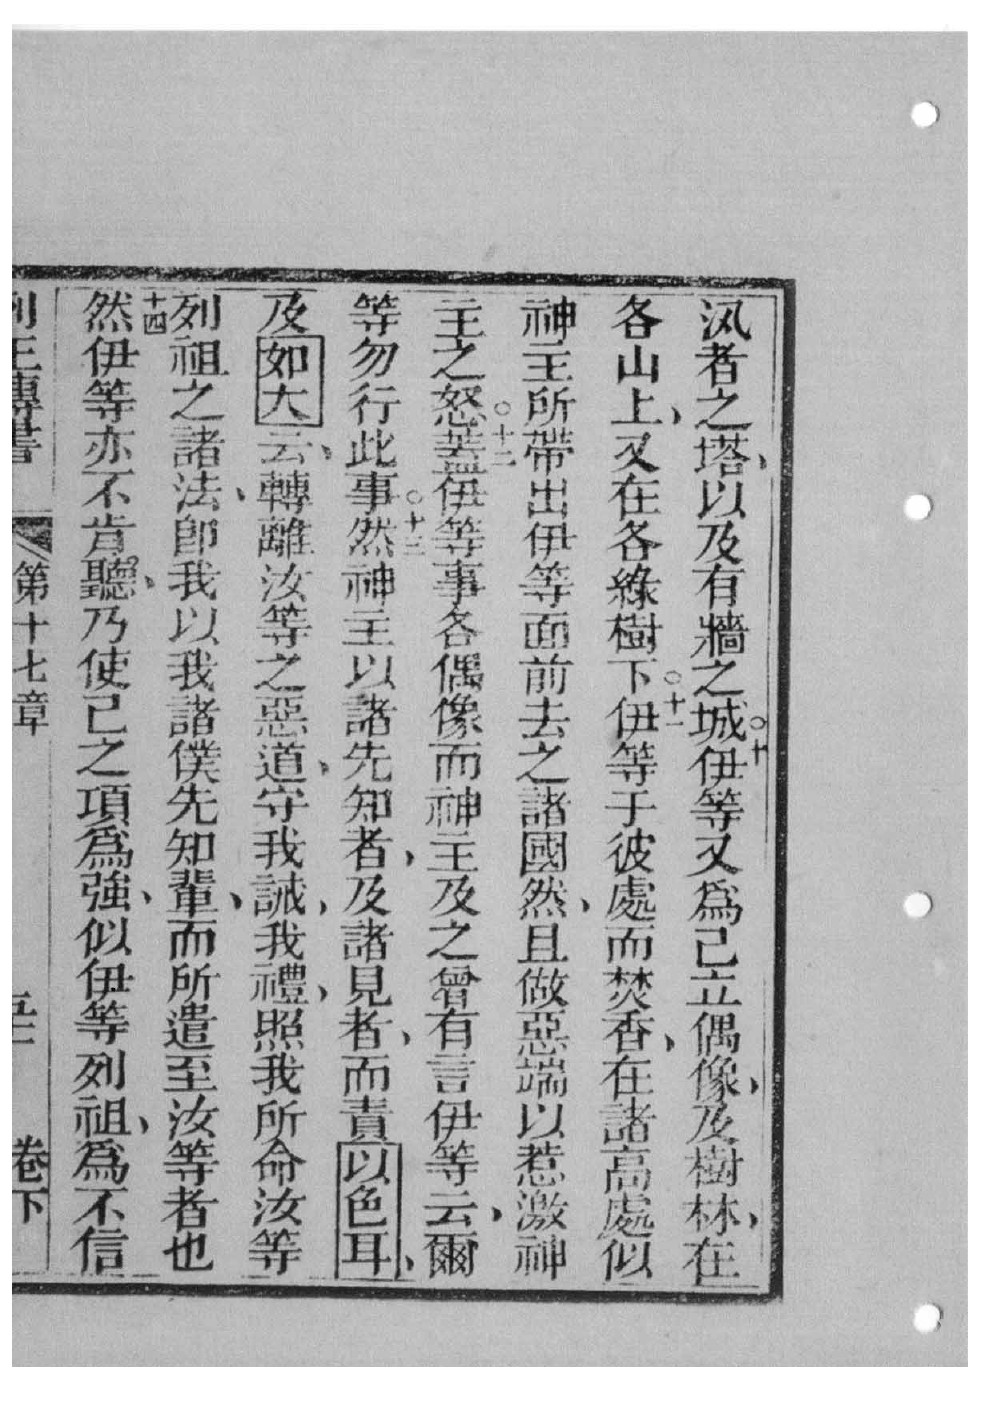 汛者之塔、以及有牆之城。十伊等又爲己立偶像、及樹林、在
各山上、又在各綠樹下。十一伊等于彼處而焚香、在諸高處似
神主所帶出伊等面前去之諸國然、且做惡端以惹激神
主之怒。十二蓋伊等事各偶像而神主及之曾有言伊等云、爾
等勿行此事。十三然神主以諸先知者、及諸見者、而責以色耳、
及如大云、轉離汝等之惡道、守我誡、我禮、照我所命汝等
列祖之諸法、卽我以我諸僕先知輩、而所遣至汝等者也
十四然伊等亦不肯聽、乃使己之項爲強、似伊等列祖、爲不信
列王傳書 第十七章 五十二 卷下